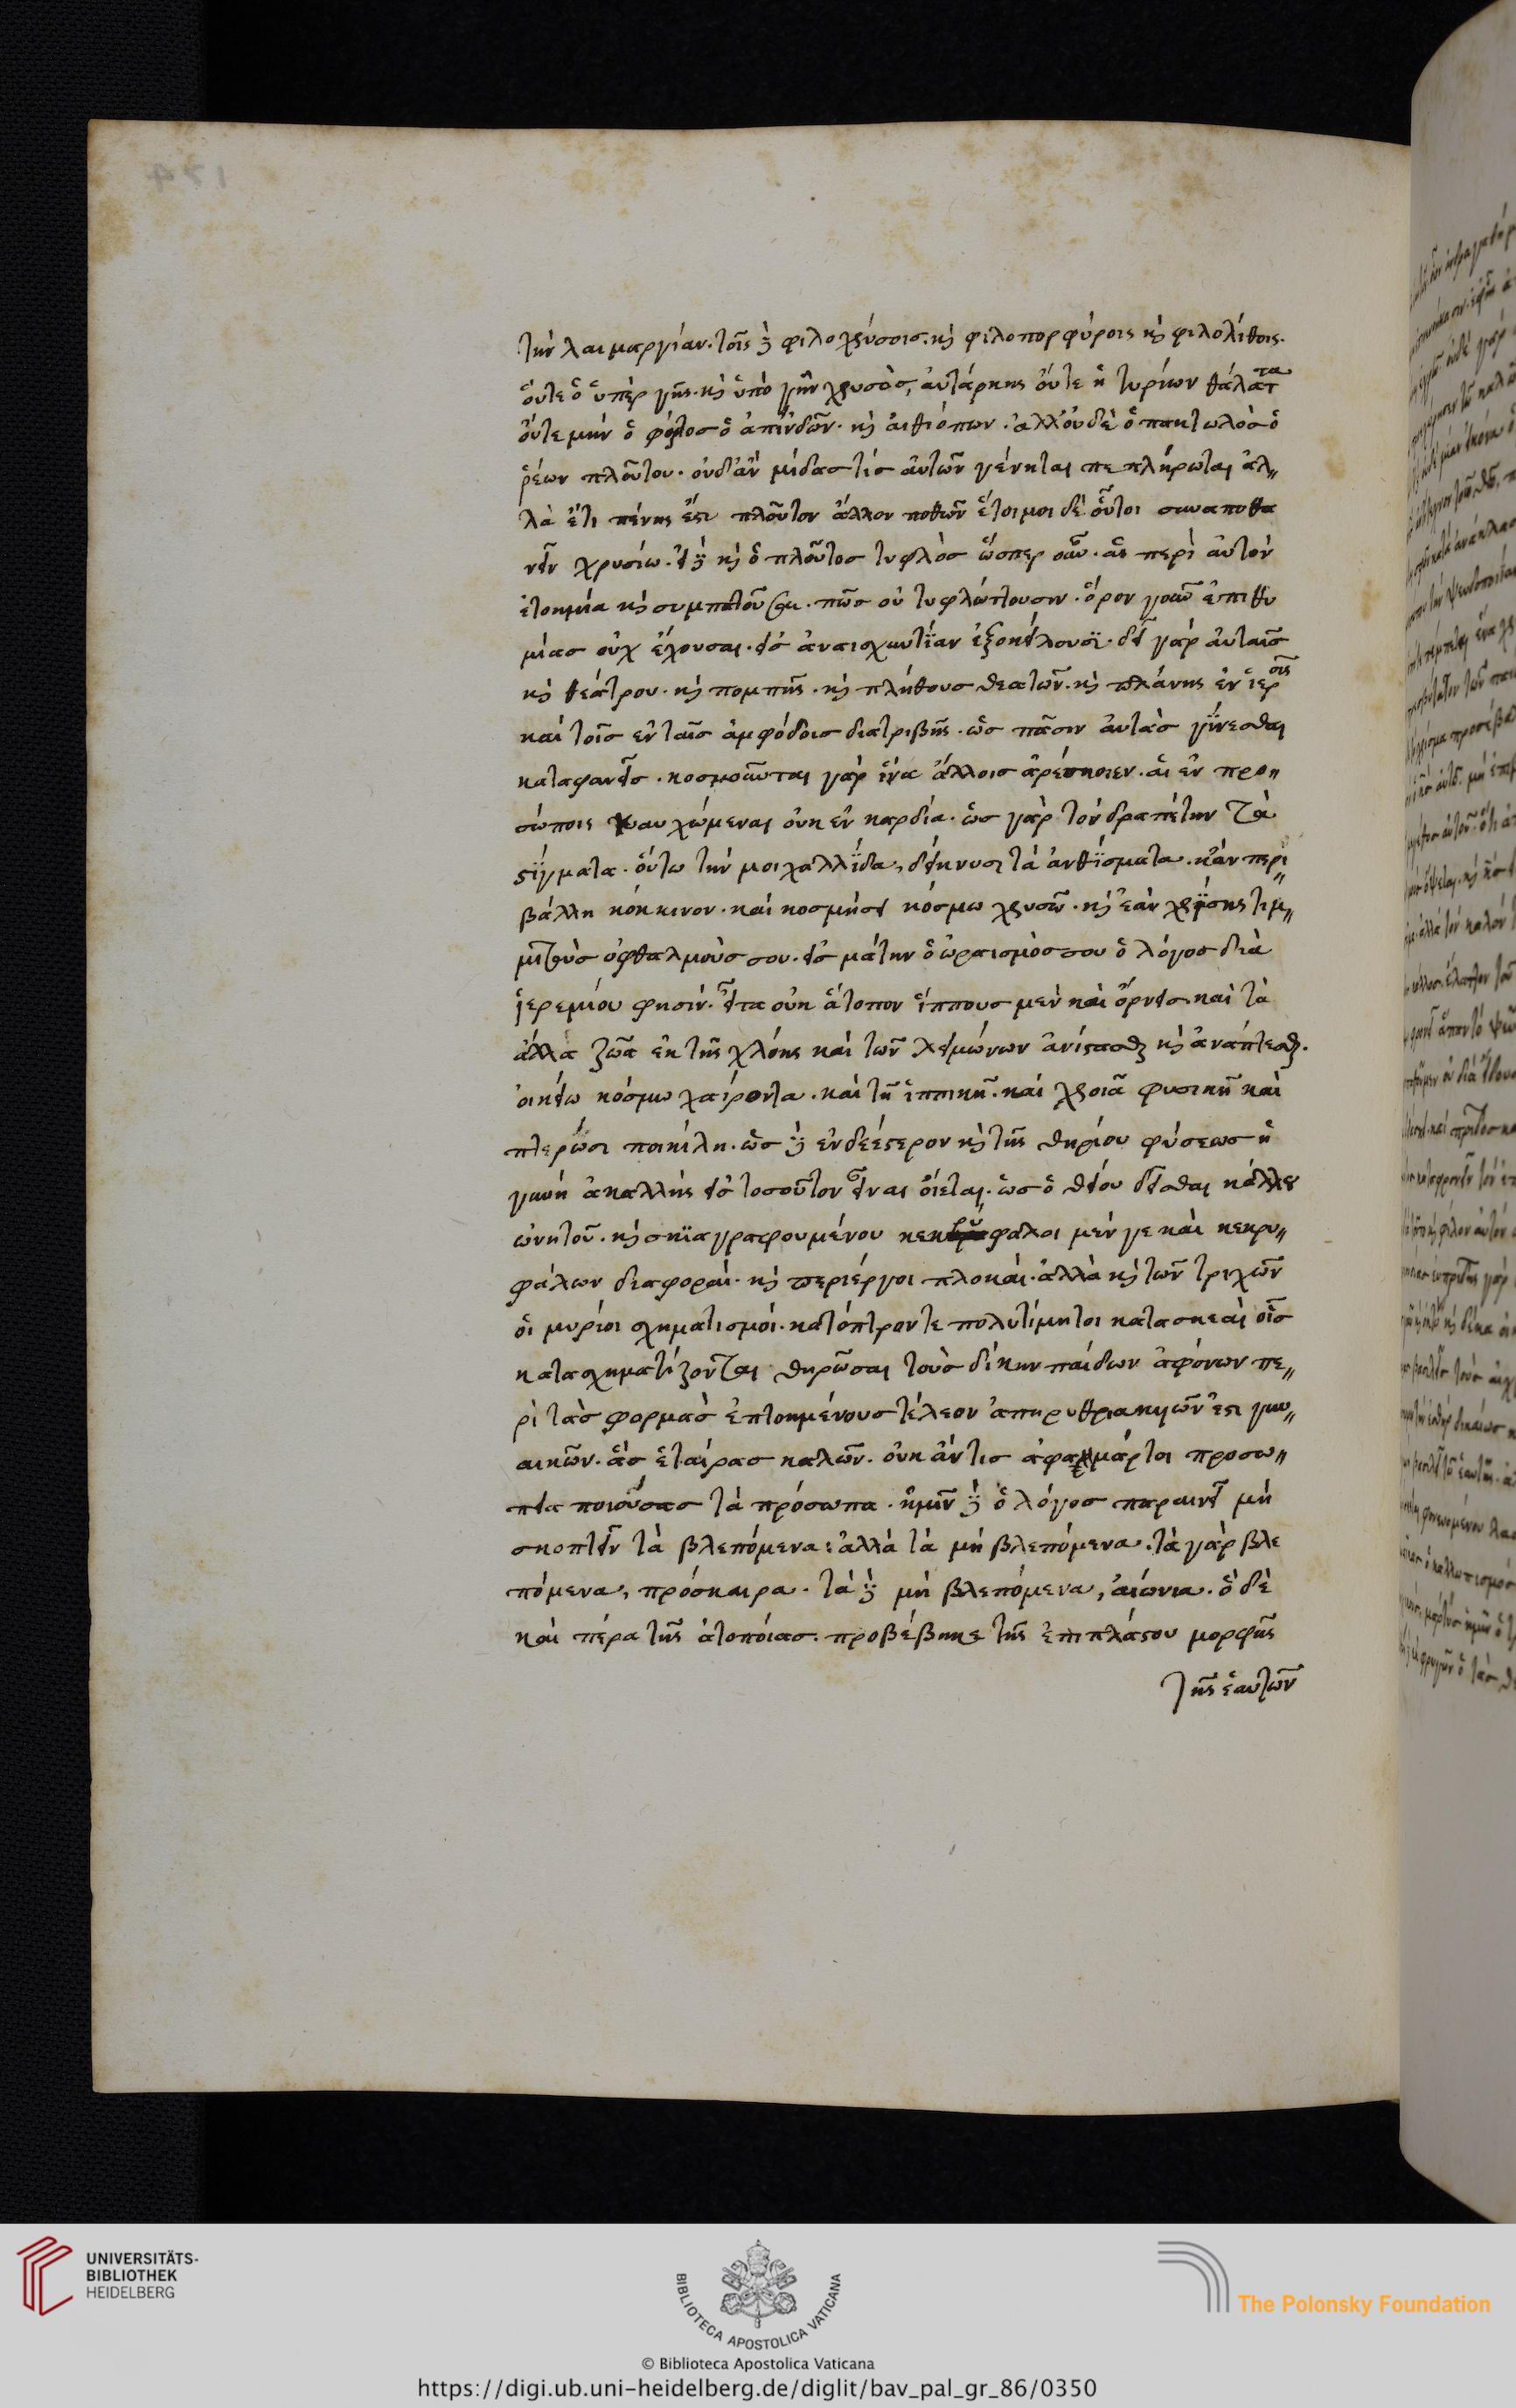 τὴν λαιμαργίαν. τοῖς δὲ φιλοχρύσοις. καὶ φιλοπορφύροις καὶ φιλολίθοις.
οὔτε ὁ ὑπὲρ γῆς. καὶ ὑπὸ γῆν χρυσὸς, αὐτάρκης οὔτε ἡ τυρίων θάλαττα
οὔτε μὴν ὁ φόρτος ὁ ἀπ' ἰνδῶν. καὶ αἰθιόπων. ἀλλ' οὐδὲ ὁ πακτωλὸς ὁ
ῥέων πλοῦτον. οὐδ' ἂν μίδας τίς αὐτῶν γένηται πεπλήρωται ἀλ〃
λὰ ἔτι πένης ἔστι πλοῦτον ἄλλον ποθῶν ἕτοιμοι δὲ οὗτοι συναποθα
νεῖν χρυσίω. εἰ δὲ καὶ ὁ πλοῦτος τυφλὸς ὥσπερ οὖν. αἱ περὶ αὐτὸν
ἐτοημέναι καὶ συμπαθοῦσαι. πῶς οὐ τυφλώττουσιν. ὅρον γοῦν ἐπιθυ
μίας οὐχ ἔχουσαι. εἰς ἀναισχυντίαν ἐξοκείλουσι. δεῖ γὰρ αὐταῖς
καὶ θεάτρου. καὶ πομπῆς. καὶ πλήθους θεατῶν. καὶ πλάνης ἐν ἱεροῖς
καὶ τοῖς ἐν ταῖς ἀμφόδοις διατριβῆς. ὡς πᾶσιν αὐτὰς γίνεσθαι
καταφανεῖς. κοσμοῦνται γὰρ ἵνα ἄλλοις ἀρέσκοιεν. αἱ ἐν προ〃
σώποις καυχώμεναι οὐκ ἐν καρδία. ὡς γὰρ τὸν δραπέτην τὰ
στίγματα. οὕτω τὴν μοιχαλλίδα, δείκνυσι τὰ ἀνθίσματα. κἂν περι〃
βάλλη κόκκινον. καὶ κοσμήση κόσμω χρυσῶ. καὶ ἐὰν χρίσης στιμ〃
μι τοὺς ὀφθαλμούς σου. εἰς μάτην ὁ ὡραισμός σου ὁ λόγος διὰ
ἱερεμίου φησίν. εἶτα οὐκ ἄτοπον ἵππους μὲν καὶ ὄρνεις. καὶ τὰ
ἄλλα ζῶα ἐκ τῆς χλόης καὶ τῶν λειμώνων ἀνίστασθαι καὶ ἀνάπτεσθαι.
οἰκείω κόσμω χαίροντα. καὶ τῆ ἱππικῆ. καὶ χροιᾶ φυσικῆ καὶ
πτερώσι ποικίλη. ὡς δὲ ἐνδεέστερον καὶ τῆς θηρίου φύσεως ἡ
γυνὴ ἀκαλλὴς εἰς τοσοῦτον εἶναι οἴεται. ὡς ὀθνείου δεῖσθαι κάλλους
ὠνητοῦ. καὶ σκιαγραφουμένου κεκρύφαλοι μέν γε καὶ κεκρυ〃
φάλων διαφοραὶ. καὶ περιέργοι πλοκαί. ἀλλὰ καὶ τῶν τριχῶν
οἱ μυρίοι σχηματισμοί. κατόπτρον τε πολυτίμητοι κατασκεαὶ οἷς
κατασχηματίζονται θηρῶσαι τοὺς δίκην παίδων ἀφόνων πε〃
ρὶ τὰς φορμὰς ἐπτοημένους τέλεον ἀπηρυθριακυιῶν ἐστι γυν〃
αικῶν. ἃς ἑταίρας καλῶν. οὐκ ἄν τις ἀφαμάρτοι προσω〃
πεῖα ποιούσας τὰ πρόσωπα. ἡμῖν δὲ ὁ λόγος παραινεῖ μὴ
σκοπεῖν τὰ βλεπόμενα: ἀλλὰ τὰ μὴ βλεπόμενα. τὰ γὰρ βλε
πόμενα, πρόσκαιρα. τὰ δὲ μὴ βλεπόμενα, αἰώνια. ὁ δὲ
καὶ πέρα τῆς ἀτοπίας. προβέβηκε τῆς ἐπιπλάστου μορφῆς
τῆς ἑαυτῶν
UNIVERSITÄTS-
BIBLIOTHEK
HEIDELBERG
BIBLIOTECA APOSTOLICA VATICANA
The Polonsky Foundation
© Biblioteca Apostolica Vaticana
https://digi.ub.uni-heidelberg.de/diglit/bav_pal_gr_86/0350